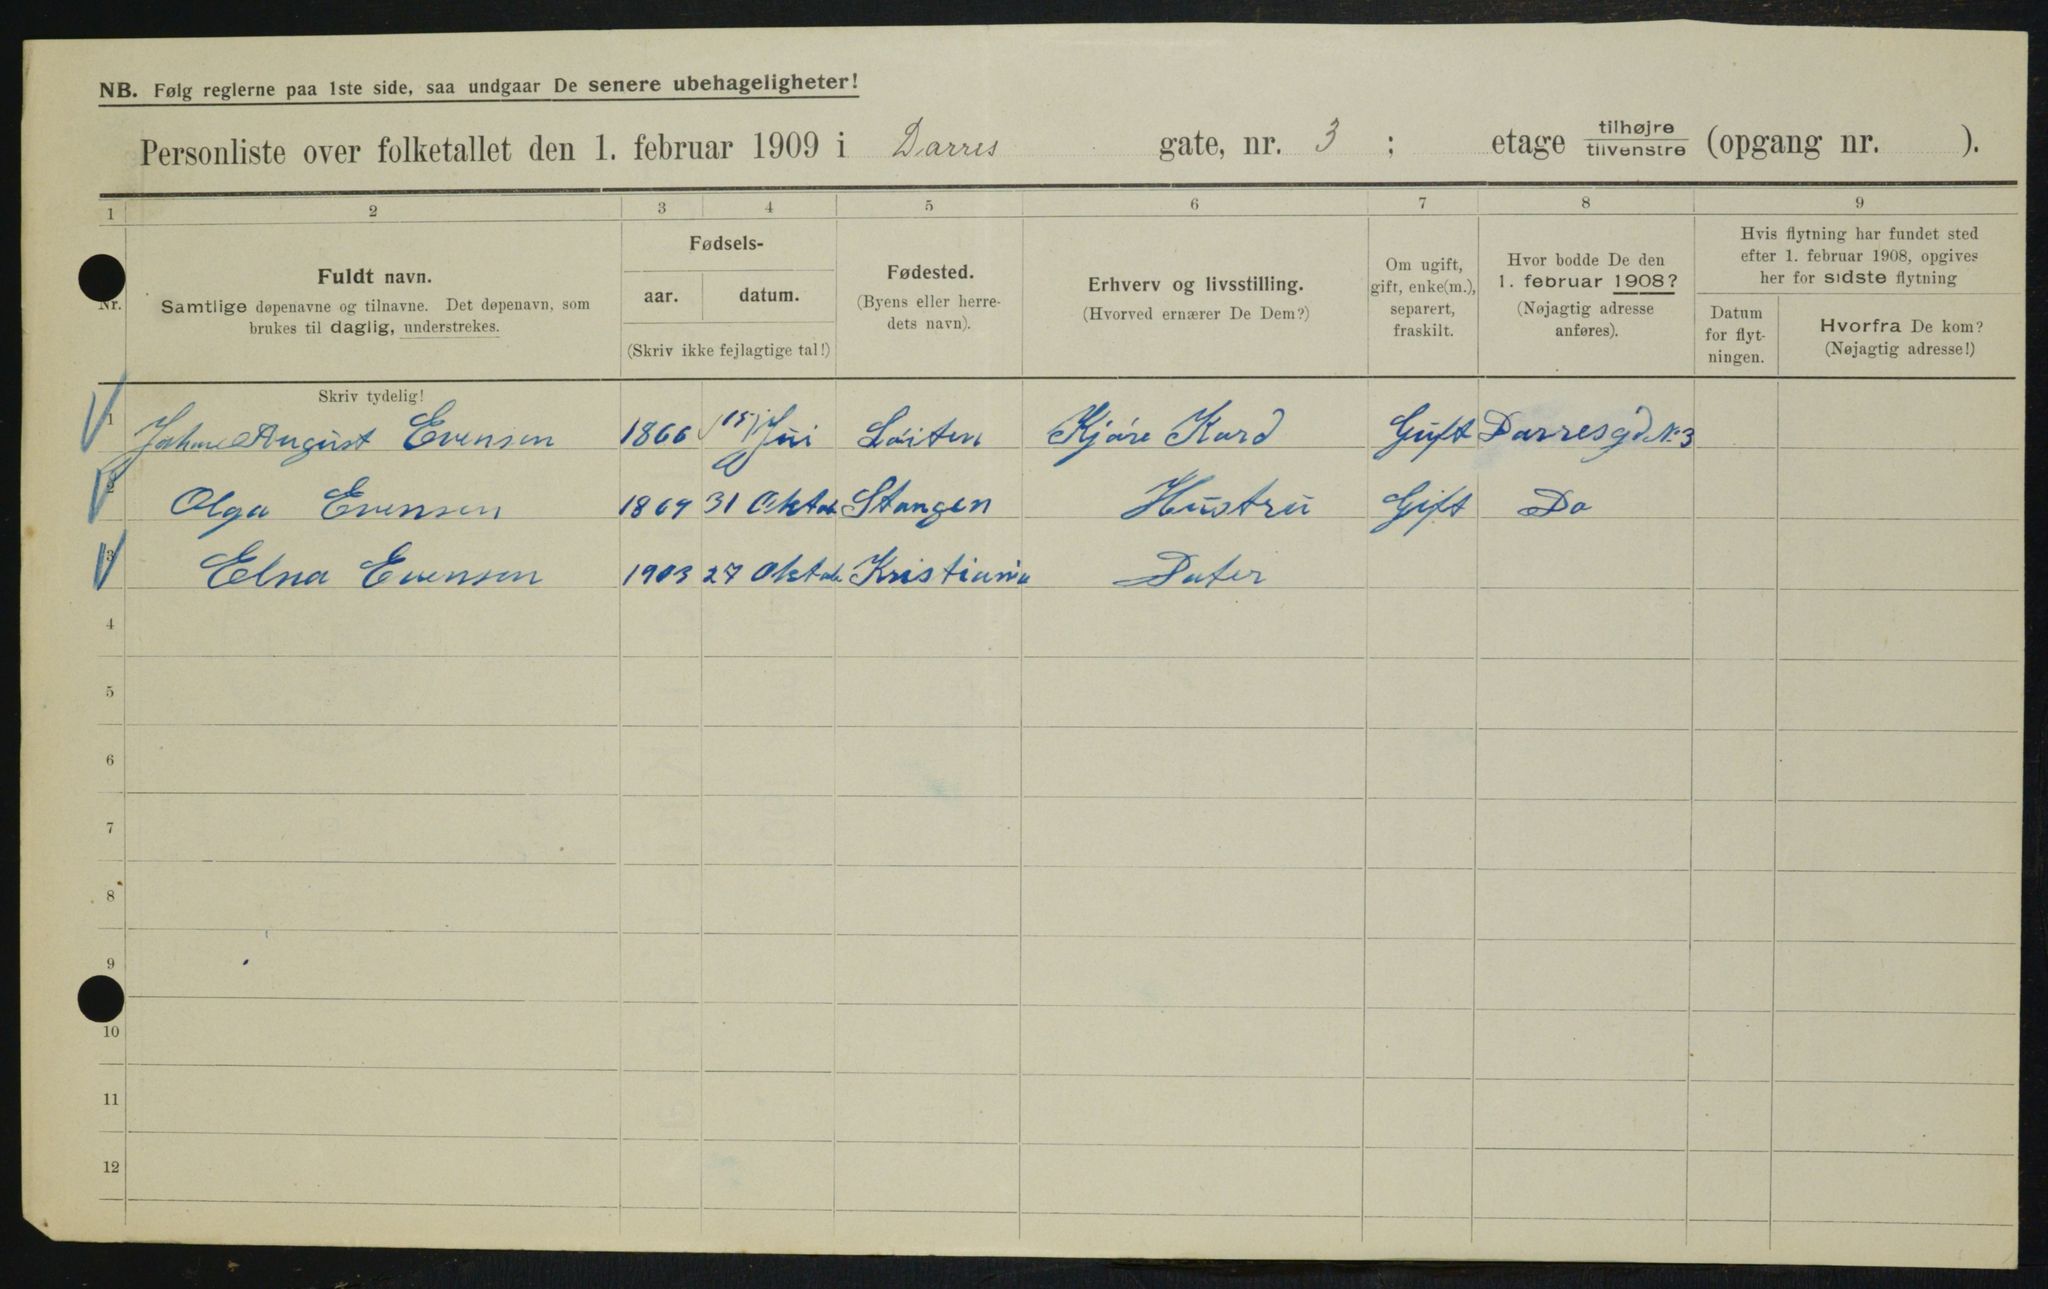 NB. Følg reglerne paa 1ste side, saa undgaar De senere ubehageligheter!
Personliste over folketallet den 1. februar 1909 i Darres gate, nr. 3 ; etage tilhøjre tilvenstre (opgang nr. ).
1 2 3 4 5 6 7 8 9
Nr.
Fuldt navn.
Samtlige døpenavne og tilnavne. Det døpenavn, som
brukes til daglig, understrekes.
Fødsels-
aar. datum.
(Skriv ikke fejlagtige tal!)
Fødested.
(Byens eller herre-
dets navn).
Erhverv og livsstilling.
(Hvorved ernærer De Dem?)
Om ugift,
gift, enke(m.),
separert,
fraskilt.
Hvor bodde De den
1. februar 1908?
(Nøjagtig adresse
anføres).
Hvis flytning har fundet sted
efter 1. februar 1908, opgives
her for sidste flytning
Datum
for flyt-
ningen.
Hvorfra De kom?
(Nøjagtig adresse!)
Skriv tydelig!
1 August Evensen 1866 15 Løiten Kjøre Kard Guft Darresgd No 3
2 Olga Evensen 1869 31 Oktob Stangen Hustru Gift Do
3 Elna Evensen 1903 27 Oktob Kristiania Dater
4
5
6
7
8
9
10
11
12